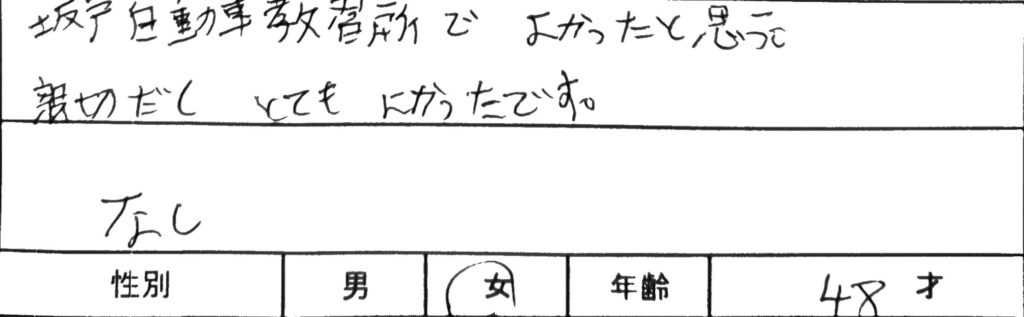 坂戸自動車教習所で よかったと思った
親切だし とても よかったです。
なし
性別 男 女 年齢 48 才